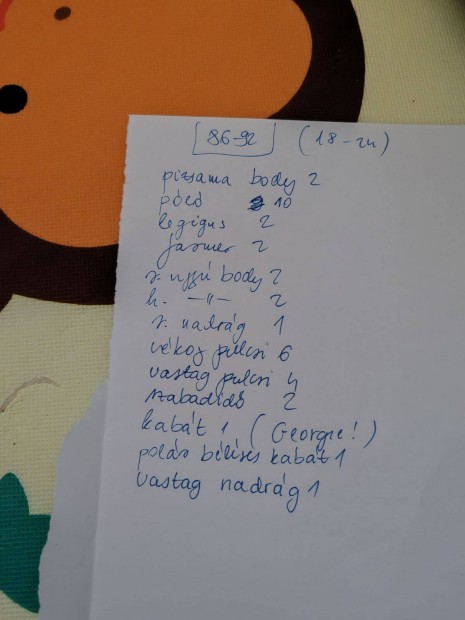 86-92 (18-24)
pizsama body 2
póló 10
leggigus 2
farmer 2
r. ujjú body 2
h. -"- 2
r. nadrág 1
vékoy pulcsi 6
vastag pulcsi 4
szabadidő 2
kabát 1 (George!)
polár béléses kabát 1
vastag nadrág 1